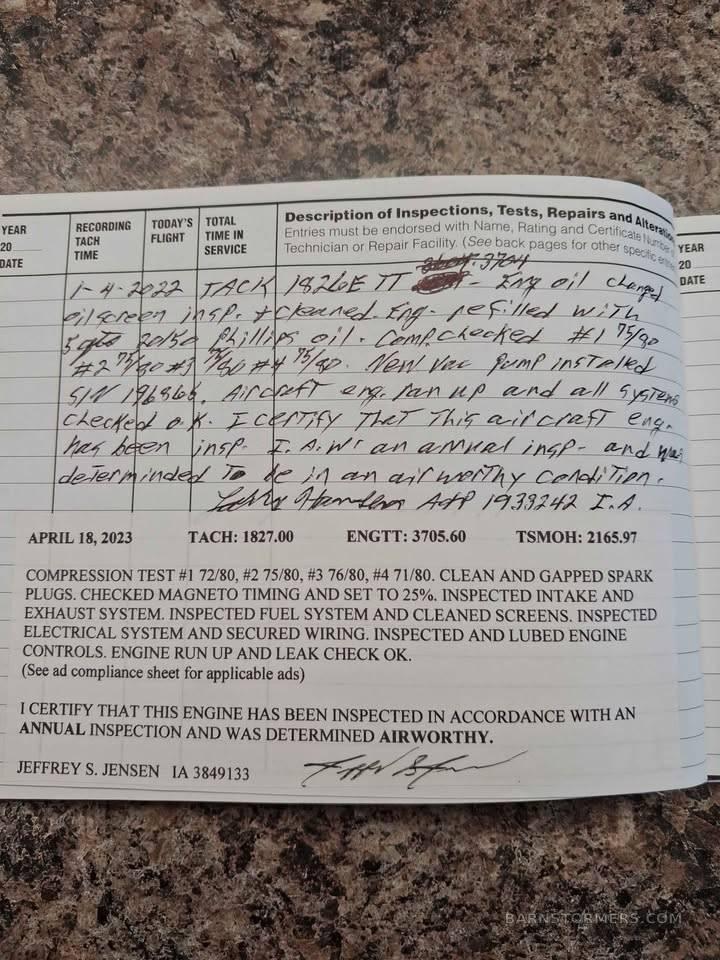 YEAR
20
DATE
RECORDING TACH TIME
TODAY'S FLIGHT
TOTAL TIME IN SERVICE
Description of Inspections, Tests, Repairs and
Entries must be endorsed with Name, Rating and Certificate
Technician or Repair Facility. (See back pages for other specific
YEAR
20
DATE
3704
1-4-2022 TACK 1826E TT - Eng oil changed
oil screen insp. + cleaned. Eng- refilled with
5 qts 20/50 Phillips oil. Comp. checked #1 75/80
#2 75/80 #3 /80 #4 75/80. New Vac pump installed
S/N 196866. Aircraft eng. ran up and all systems
checked o.k. I certify That This aircraft eng.
has been insp- I.A.W. an annual insp- and was
determinded To be in an airworthy condition.
A&P 1933242 I.A.
APRIL 18, 2023 TACH: 1827.00 ENGTT: 3705.60 TSMOH: 2165.97
COMPRESSION TEST #1 72/80, #2 75/80, #3 76/80, #4 71/80. CLEAN AND GAPPED SPARK
PLUGS. CHECKED MAGNETO TIMING AND SET TO 25%. INSPECTED INTAKE AND
EXHAUST SYSTEM. INSPECTED FUEL SYSTEM AND CLEANED SCREENS. INSPECTED
ELECTRICAL SYSTEM AND SECURED WIRING. INSPECTED AND LUBED ENGINE
CONTROLS. ENGINE RUN UP AND LEAK CHECK OK.
(See ad compliance sheet for applicable ads)
I CERTIFY THAT THIS ENGINE HAS BEEN INSPECTED IN ACCORDANCE WITH AN
ANNUAL INSPECTION AND WAS DETERMINED AIRWORTHY.
JEFFREY S. JENSEN IA 3849133
BARNSTORMERS.COM